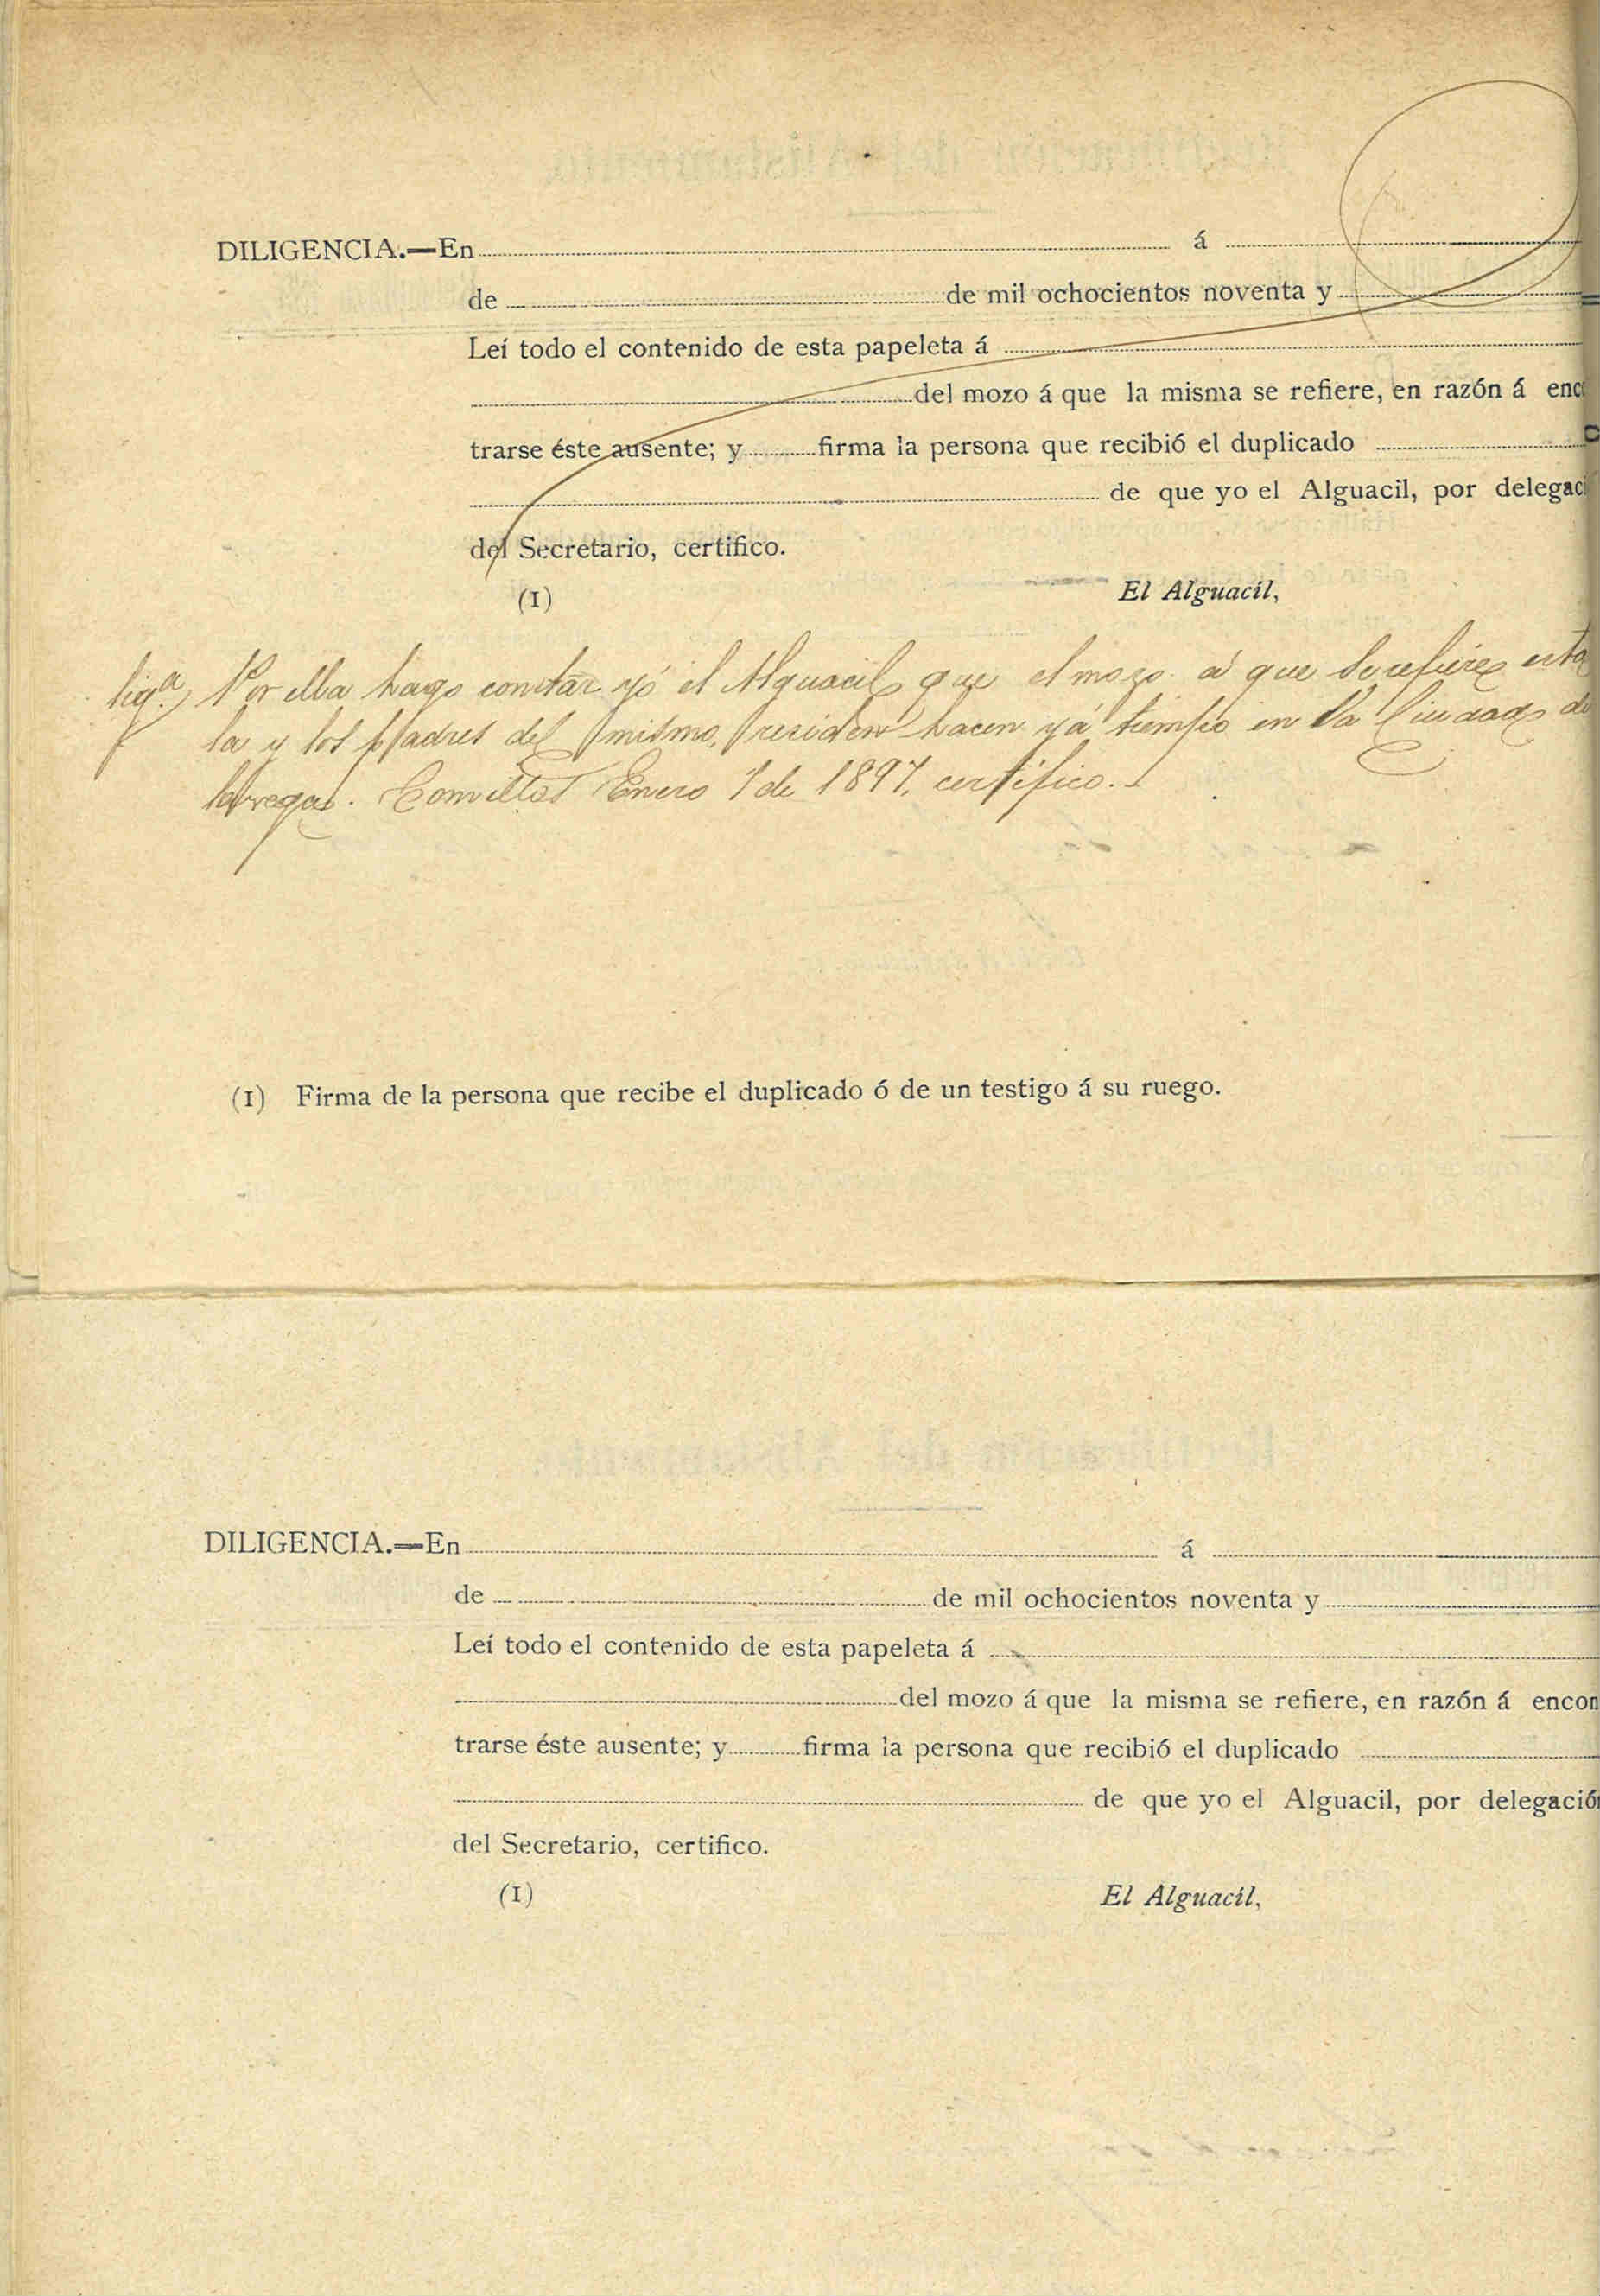 DILIGENCIA.—En á
de de mil ochocientos noventa y
Leí todo el contenido de esta papeleta á
del mozo á que la misma se refiere, en razón á enco
trarse éste ausente; y firma la persona que recibió el duplicado
de que yo el Alguacil, por delegaci
del Secretario, certifico.
(1) El Alguacil,
lig.ª Por ella hago constar yó el Alguacil que el mozo á que se refiere esta
la y los padres del mismo, residen hacen yá tiempo en la Ciudad de
Comillas Enero 1 de 1897, certifico.
(1) Firma de la persona que recibe el duplicado ó de un testigo á su ruego.
DILIGENCIA.—En á
de de mil ochocientos noventa y
Leí todo el contenido de esta papeleta á
del mozo á que la misma se refiere, en razón á encon
trarse éste ausente; y firma la persona que recibió el duplicado
de que yo el Alguacil, por delegació
del Secretario, certifico.
(1) El Alguacil,